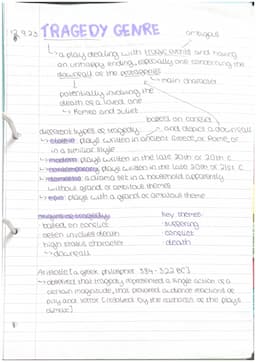 12.9.23 TRAGEDY GENRE
ambiguous
↳ a play dealing with tragic events and having
an unhappy ending, especially one concerning the
downfall of the protagonist
↳ main character
potentially involving the
death of a loved one
↳ Romeo and Juliet
based on conflict
different types of tragedy and depicts a downfall
↳ classic plays written in ancient Greece, or Rome, or
in a similar style
↳ modern plays written in the late 19th or 20th C
↳ contemporary plays written in the late 20th or 21st C
↳ domestic a drama set in a household apparently
without grand or ambitious themes
↳ epic plays with a grand or ambitious theme
based on conflict
often involves death
high status character
↳ downfall
key themes
suffering
conflict
death
Aristotle (a greek philosopher 384 - 322 BC)
↳ observed that tragedy represented a single action of a
certain magnitude, that provoked audience reactions of
pity and terror (relieved by the catharsis of the play's